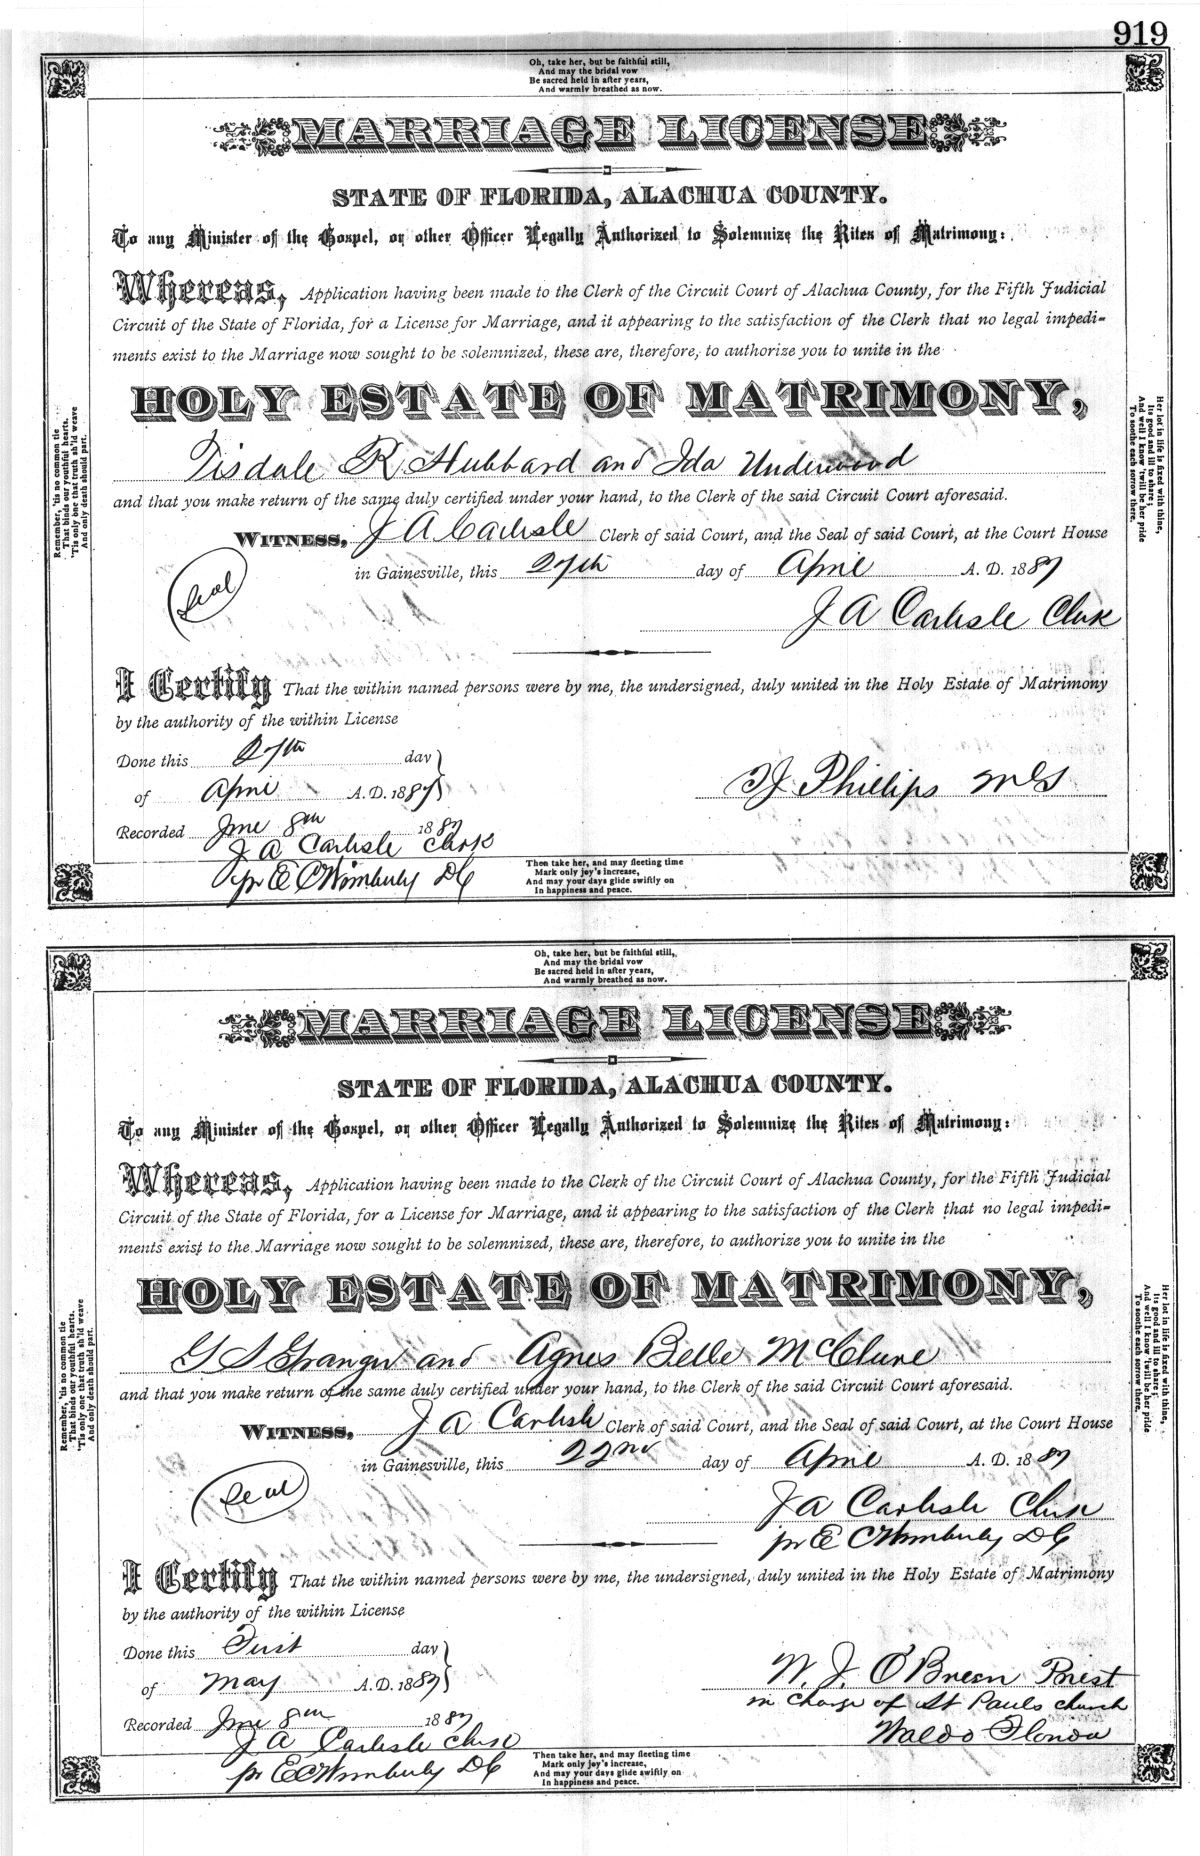 919
Oh, take her, but be faithful still,
And may the bridal vow
Be sacred held in after years,
And warmly breathed as now.
MARRIAGE LICENSE
STATE OF FLORIDA, ALACHUA COUNTY.
To any Minister of the Gospel, or other Officer Legally Authorized to Solemnize the Rites of Matrimony:
Whereas, Application having been made to the Clerk of the Circuit Court of Alachua County, for the Fifth Judicial
Circuit of the State of Florida, for a License for Marriage, and it appearing to the satisfaction of the Clerk that no legal impedi-
ments exist to the Marriage now sought to be solemnized, these are, therefore, to authorize you to unite in the
HOLY ESTATE OF MATRIMONY,
Tisdale R Hubbard and Ida Underwood
and that you make return of the same duly certified under your hand, to the Clerk of the said Circuit Court aforesaid.
WITNESS, J A Carlisle Clerk of said Court, and the Seal of said Court, at the Court House
in Gainesville, this 27th day of April A. D. 1887
Seal
J A Carlisle Clerk
I Certify That the within named persons were by me, the undersigned, duly united in the Holy Estate of Matrimony
by the authority of the within License
Done this 27th day
of April A. D. 1887
J Phillips
Recorded June 8th 1887
J A Carlisle Clerk
pr E C Wimberly D C
Then take her, and may fleeting time
Mark only joy's increase,
And may your days glide swiftly on
In happiness and peace.
Remember, 'tis no common tie
That binds our youthful hearts,
'Tis only one that truth sh'ld weave
And only death should part.
Her lot in life is fixed with thine,
Its good and ill to share;
And well I know 'twill be her pride
To soothe each sorrow there.
Oh, take her, but be faithful still,
And may the bridal vow
Be sacred held in after years,
And warmly breathed as now.
MARRIAGE LICENSE
STATE OF FLORIDA, ALACHUA COUNTY.
To any Minister of the Gospel, or other Officer Legally Authorized to Solemnize the Rites of Matrimony:
Whereas, Application having been made to the Clerk of the Circuit Court of Alachua County, for the Fifth Judicial
Circuit of the State of Florida, for a License for Marriage, and it appearing to the satisfaction of the Clerk that no legal impedi-
ments exist to the Marriage now sought to be solemnized, these are, therefore, to authorize you to unite in the
HOLY ESTATE OF MATRIMONY,
G S Granger and Agnes Belle McClure
and that you make return of the same duly certified under your hand, to the Clerk of the said Circuit Court aforesaid.
WITNESS, J A Carlisle Clerk of said Court, and the Seal of said Court, at the Court House
in Gainesville, this 22nd day of April A. D. 1887
Seal
J A Carlisle Clerk
pr E C Wimberly D C
I Certify That the within named persons were by me, the undersigned, duly united in the Holy Estate of Matrimony
by the authority of the within License
Done this First day
of May A. D. 1887
W. J. O'Brien Priest
in charge of St Pauls church
Waldo Florida
Recorded June 8th 1887
J A Carlisle Clerk
pr E C Wimberly D C
Then take her, and may fleeting time
Mark only joy's increase,
And may your days glide swiftly on
In happiness and peace.
Remember, 'tis no common tie
That binds our youthful hearts,
'Tis only one that truth sh'ld weave
And only death should part.
Her lot in life is fixed with thine,
Its good and ill to share;
And well I know 'twill be her pride
To soothe each sorrow there.